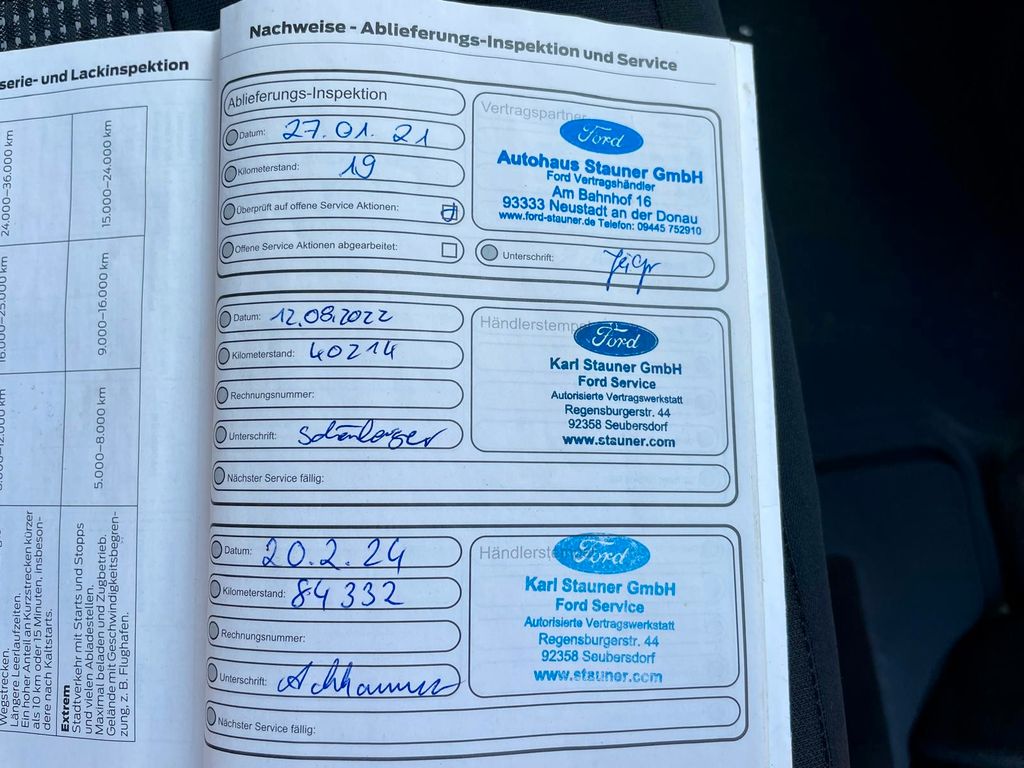 serie- und Lackinspektion
24.000–36.000 km
15.000–24.000 km
9.000–16.000 km
5.000–8.000 km
Wegstrecken.
Längere Leerlaufzeiten.
Ein hoher Anteil an Kurzstrecken kürzer
als 10 km oder 15 Minuten, insbeson-
dere nach Kaltstarts.
Extrem
Stadtverkehr mit Starts und Stopps
und vielen Abladestellen.
Maximal beladen und Zugbetrieb.
Gelände mit Geschwindigkeitsbegren-
zung, z. B. Flughafen.
Nachweise - Ablieferungs-Inspektion und Service
Ablieferungs-Inspektion
Datum: 27.01.21
Kilometerstand: 19
Überprüft auf offene Service Aktionen:
Offene Service Aktionen abgearbeitet:
Vertragspartner
Ford
Autohaus Stauner GmbH
Ford Vertragshändler
Am Bahnhof 16
93333 Neustadt an der Donau
www.ford-stauner.de Telefon: 09445 752910
Unterschrift:
Datum: 12.08.2022
Kilometerstand: 40214
Rechnungsnummer:
Unterschrift:
Nächster Service fällig:
Händlerstempe
Ford
Karl Stauner GmbH
Ford Service
Autorisierte Vertragswerkstatt
Regensburgerstr. 44
92358 Seubersdorf
www.stauner.com
Datum: 20.2.24
Kilometerstand: 84332
Rechnungsnummer:
Unterschrift:
Nächster Service fällig:
Händlerste
Ford
Karl Stauner GmbH
Ford Service
Autorisierte Vertragswerkstatt
Regensburgerstr. 44
92358 Seubersdorf
www.stauner.com